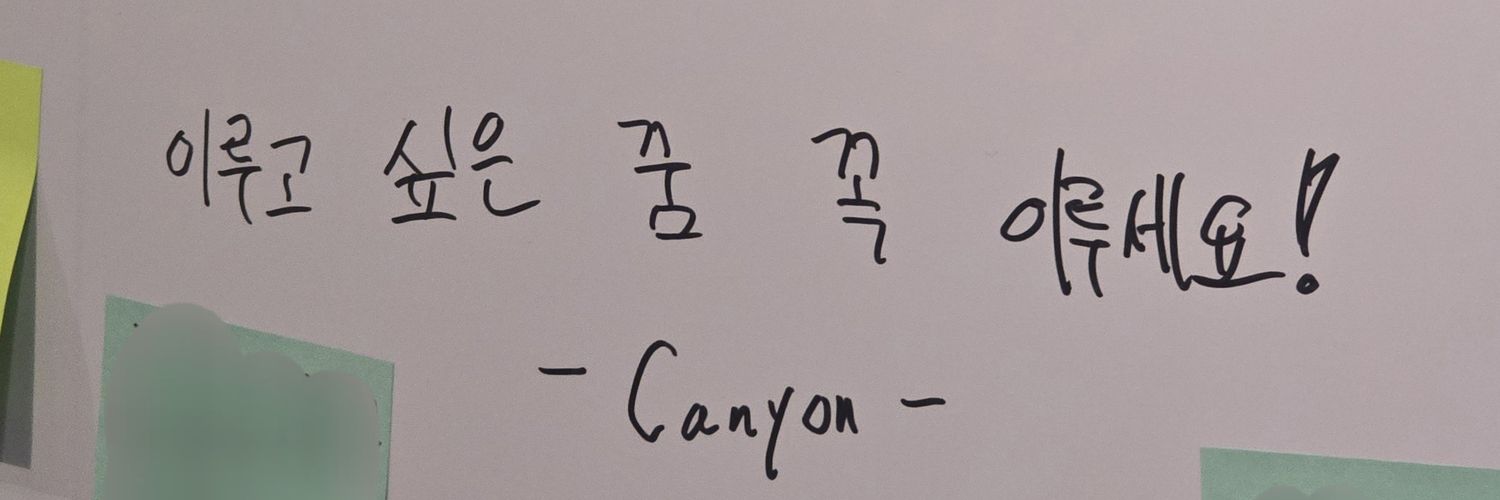 이루고 싶은 꿈 꼭 이루세요!
- Canyon -